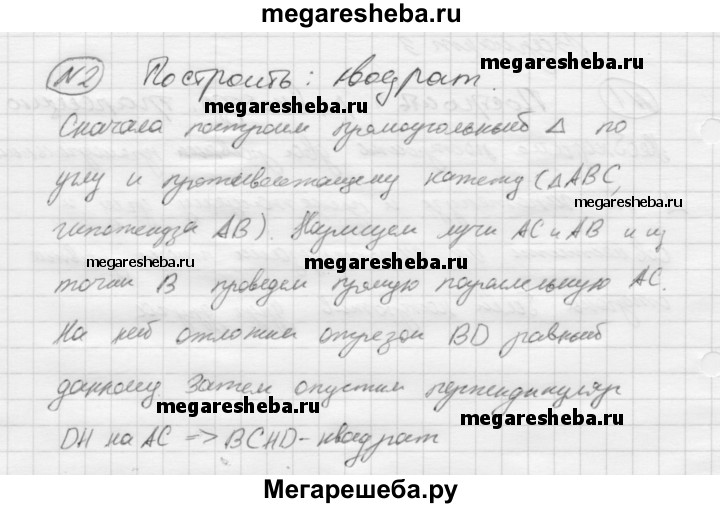 megaresheba.ru
N2 Построить: квадрат.
megaresheba.ru
megaresheba.ru
Сначала построим прямоугольный Δ по
углу и противолежащему катету (ΔABC,
megaresheba.ru
гипотенуза AB). Нарисуем лучи AC и AB и из
megaresheba.ru
megaresheba.ru
точки B проведем прямую параллельную AC.
На ней отложим отрезок BD равный
данному. Затем опустим перпендикуляр
megaresheba.ru
megaresheba.ru
DH на AC => BCHD - квадрат
Мегарешеба.ру